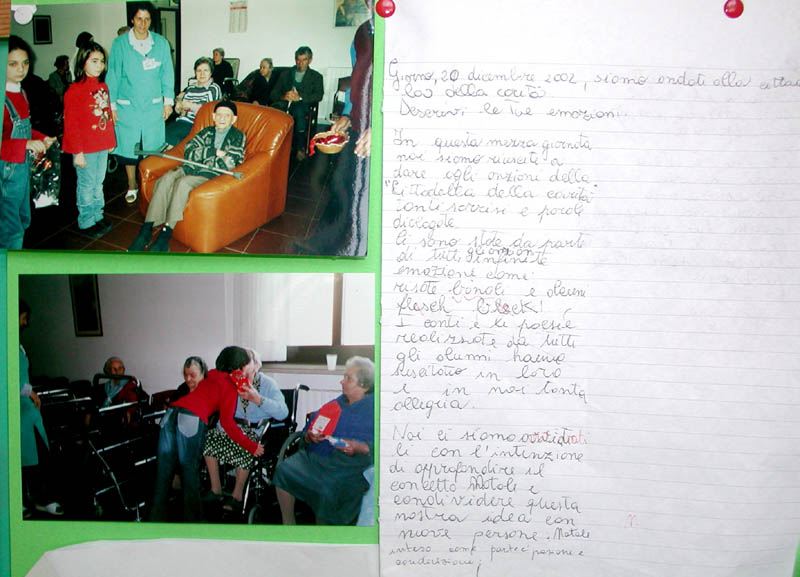 Giorno, 20 dicembre 2002, siamo andati alla cittadel
la della carità
Descrivi le tue emozioni.
In questa mezza giornata
noi siamo riusciti a
dare agli anziani della
"Cittadella della carità"
tanti sorrisi e parole
delicate
Ci sono state da parte
di tutti gli anziani infinite
emozione come:
risate banali e alcuni
flasch black!
I canti e le poesie
realizzate da tutti
gli alunni hanno
suscitato in loro
e in noi tanta
allegria.
Noi ci siamo
li con l'intenzione
di approfondire il
concetto Natale e
condividere questa
nostra idea con
nuove persone. Natale
inteso come partecipazione e
condivisione;